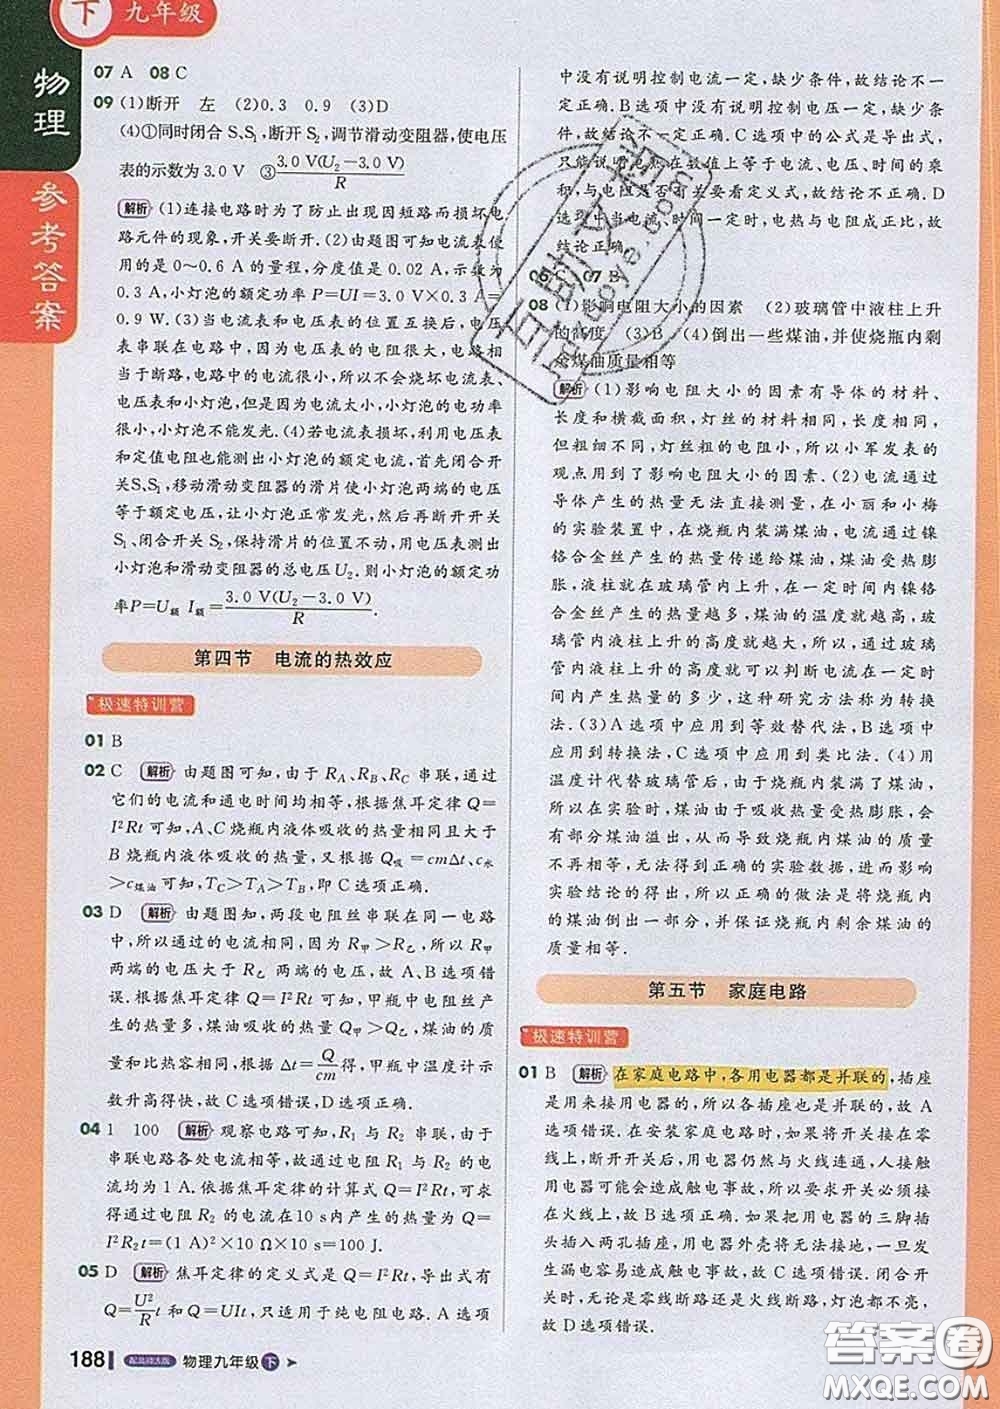 下 九年级
物理
参考答案
07 A 08 C
09 (1)断开 左 (2)0.3 0.9 (3)D
(4)①同时闭合 S、S₁,断开 S₂,调节滑动变阻器,使电压
表的示数为 3.0 V ③3.0 V(U₂－3.0 V)/R
解析 (1)连接电路时为了防止出现因短路而损坏电
路元件的现象,开关要断开.(2)由题图可知电流表使
用的是 0～0.6 A 的量程,分度值是 0.02 A,示数为
0.3 A,小灯泡的额定功率 P=UI=3.0 V×0.3 A=
0.9 W.(3)当电流表和电压表的位置互换后,电压
表串联在电路中,因为电压表的电阻很大,电路相
当于断路,电路中的电流很小,所以不会烧坏电流表、
电压表和小灯泡,但是因为电流太小,小灯泡的电功率
很小,小灯泡不能发光.(4)若电流表损坏,利用电压表
和定值电阻也能测出小灯泡的额定电流,首先闭合开
关S、S₁,移动滑动变阻器的滑片使小灯泡两端的电压
等于额定电压,让小灯泡正常发光,然后再断开开关
S₁、闭合开关 S₂,保持滑片的位置不动,用电压表测出
小灯泡和滑动变阻器的总电压 U₂.则小灯泡的额定功
率P=U额 I额=3.0 V(U₂－3.0 V)/R.
第四节 电流的热效应
极速特训营
01 B
02 C 解析 由题图可知,由于 R_A、R_B、R_C 串联,通过
它们的电流和通电时间均相等,根据焦耳定律 Q=
I²Rt 可知,A、C 烧瓶内液体吸收的热量相同且大于
B 烧瓶内液体吸收的热量,又根据 Q吸=cmΔt、c水
>c煤油 可知,T_C>T_A>T_B,即 C 选项正确.
03 D 解析 由题图知,两段电阻丝串联在同一电路
中,所以通过的电流相同,因为 R甲>R乙,所以 R甲
两端的电压大于 R乙 两端的电压,故 A、B 选项错
误.根据焦耳定律 Q=I²Rt 可知,甲瓶中电阻丝产
生的热量多,煤油吸收的热量 Q甲>Q乙,煤油的质
量和比热容相同,根据 Δt=Q/cm得,甲瓶中温度计示
数升高得快,故 C 选项错误,D 选项正确.
04 1 100 解析 观察电路可知,R₁ 与 R₂ 串联,由于
串联电路各处电流相等,故通过电阻 R₁ 与 R₂ 的电
流均为 1 A.依据焦耳定律的计算式 Q=I²Rt,可求
得通过电阻 R₂ 的电流在10 s内产生的热量为 Q=
I²R₂t=(1 A)²×10 Ω×10 s=100 J.
05 D 解析 焦耳定律的定义式是 Q=I²Rt,导出式有
Q=U²/R t 和 Q=UIt,只适用于纯电阻电路.A 选项
中没有说明控制电流一定,缺少条件,故结论不一
定正确.B 选项中没有说明控制电压一定,缺少条
件,故结论不一定正确.C 选项中的公式是导出式,
只能说明电热在数值上等于电流、电压、时间的乘
积,与电阻是否有关要看定义式,故结论不正确.D
选项中当电流、时间一定时,电热与电阻成正比,故
结论正确.
06 C 07 B
08 (1)影响电阻大小的因素 (2)玻璃管中液柱上升
的高度 (3)B (4)倒出一些煤油,并使烧瓶内剩
余煤油质量相等
解析 (1)影响电阻大小的因素有导体的材料、
长度和横截面积,灯丝的材料相同,长度相同,
但粗细不同,灯丝粗的电阻小,所以小军发表的
观点用到了影响电阻大小的因素.(2)电流通过
导体产生的热量无法直接测量,在小丽和小梅
的实验装置中,在烧瓶内装满煤油,电流通过镍
铬合金丝产生的热量传递给煤油,煤油受热膨
胀,液柱就在玻璃管内上升,在一定时间内镍铬
合金丝产生的热量越多,煤油的温度就越高,玻
璃管内液柱上升的高度就越大,所以可以用玻璃
管内液柱上升的高度来判断电流在一定时
间内产生热量的多少,这种研究方法称为转换
法.(3)A 选项中应用到等效替代法,B 选项中
应用到转换法,C 选项中应用到类比法.(4)用
温度计代替玻璃管后,由于烧瓶内装满了煤油,
所以在实验时,煤油由于吸收热量受热膨胀,会
有部分煤油溢出,从而导致烧瓶内煤油的质量
不再相等,无法得到正确的实验数据,进而影响
实验结论的得出,所以正确的做法是将烧瓶内
的煤油倒出一部分,并保证烧瓶内剩余煤油的
质量相等.
第五节 家庭电路
极速特训营
01 B 解析 在家庭电路中,各用电器都是并联的,插座
是用来接用电器的,所以各插座也是并联的,故 A
选项错误.在安装家庭电路时,如果将开关接在零线
上,断开开关后,用电器仍然与火线连通,人接触
用电器可能会造成触电事故,所以要求开关必须接
在火线上,故 B 选项正确.如果把用电器的三脚插
头插入两孔插座,用电器外壳将无法接地,一旦发
生漏电容易造成触电事故,故 C 选项错误.闭合开
关时,无论是零线断路还是火线断路,灯泡都不亮,
故 D 选项错误.
188 配北师大版 物理九年级 下
答案圈
MXQE.COM